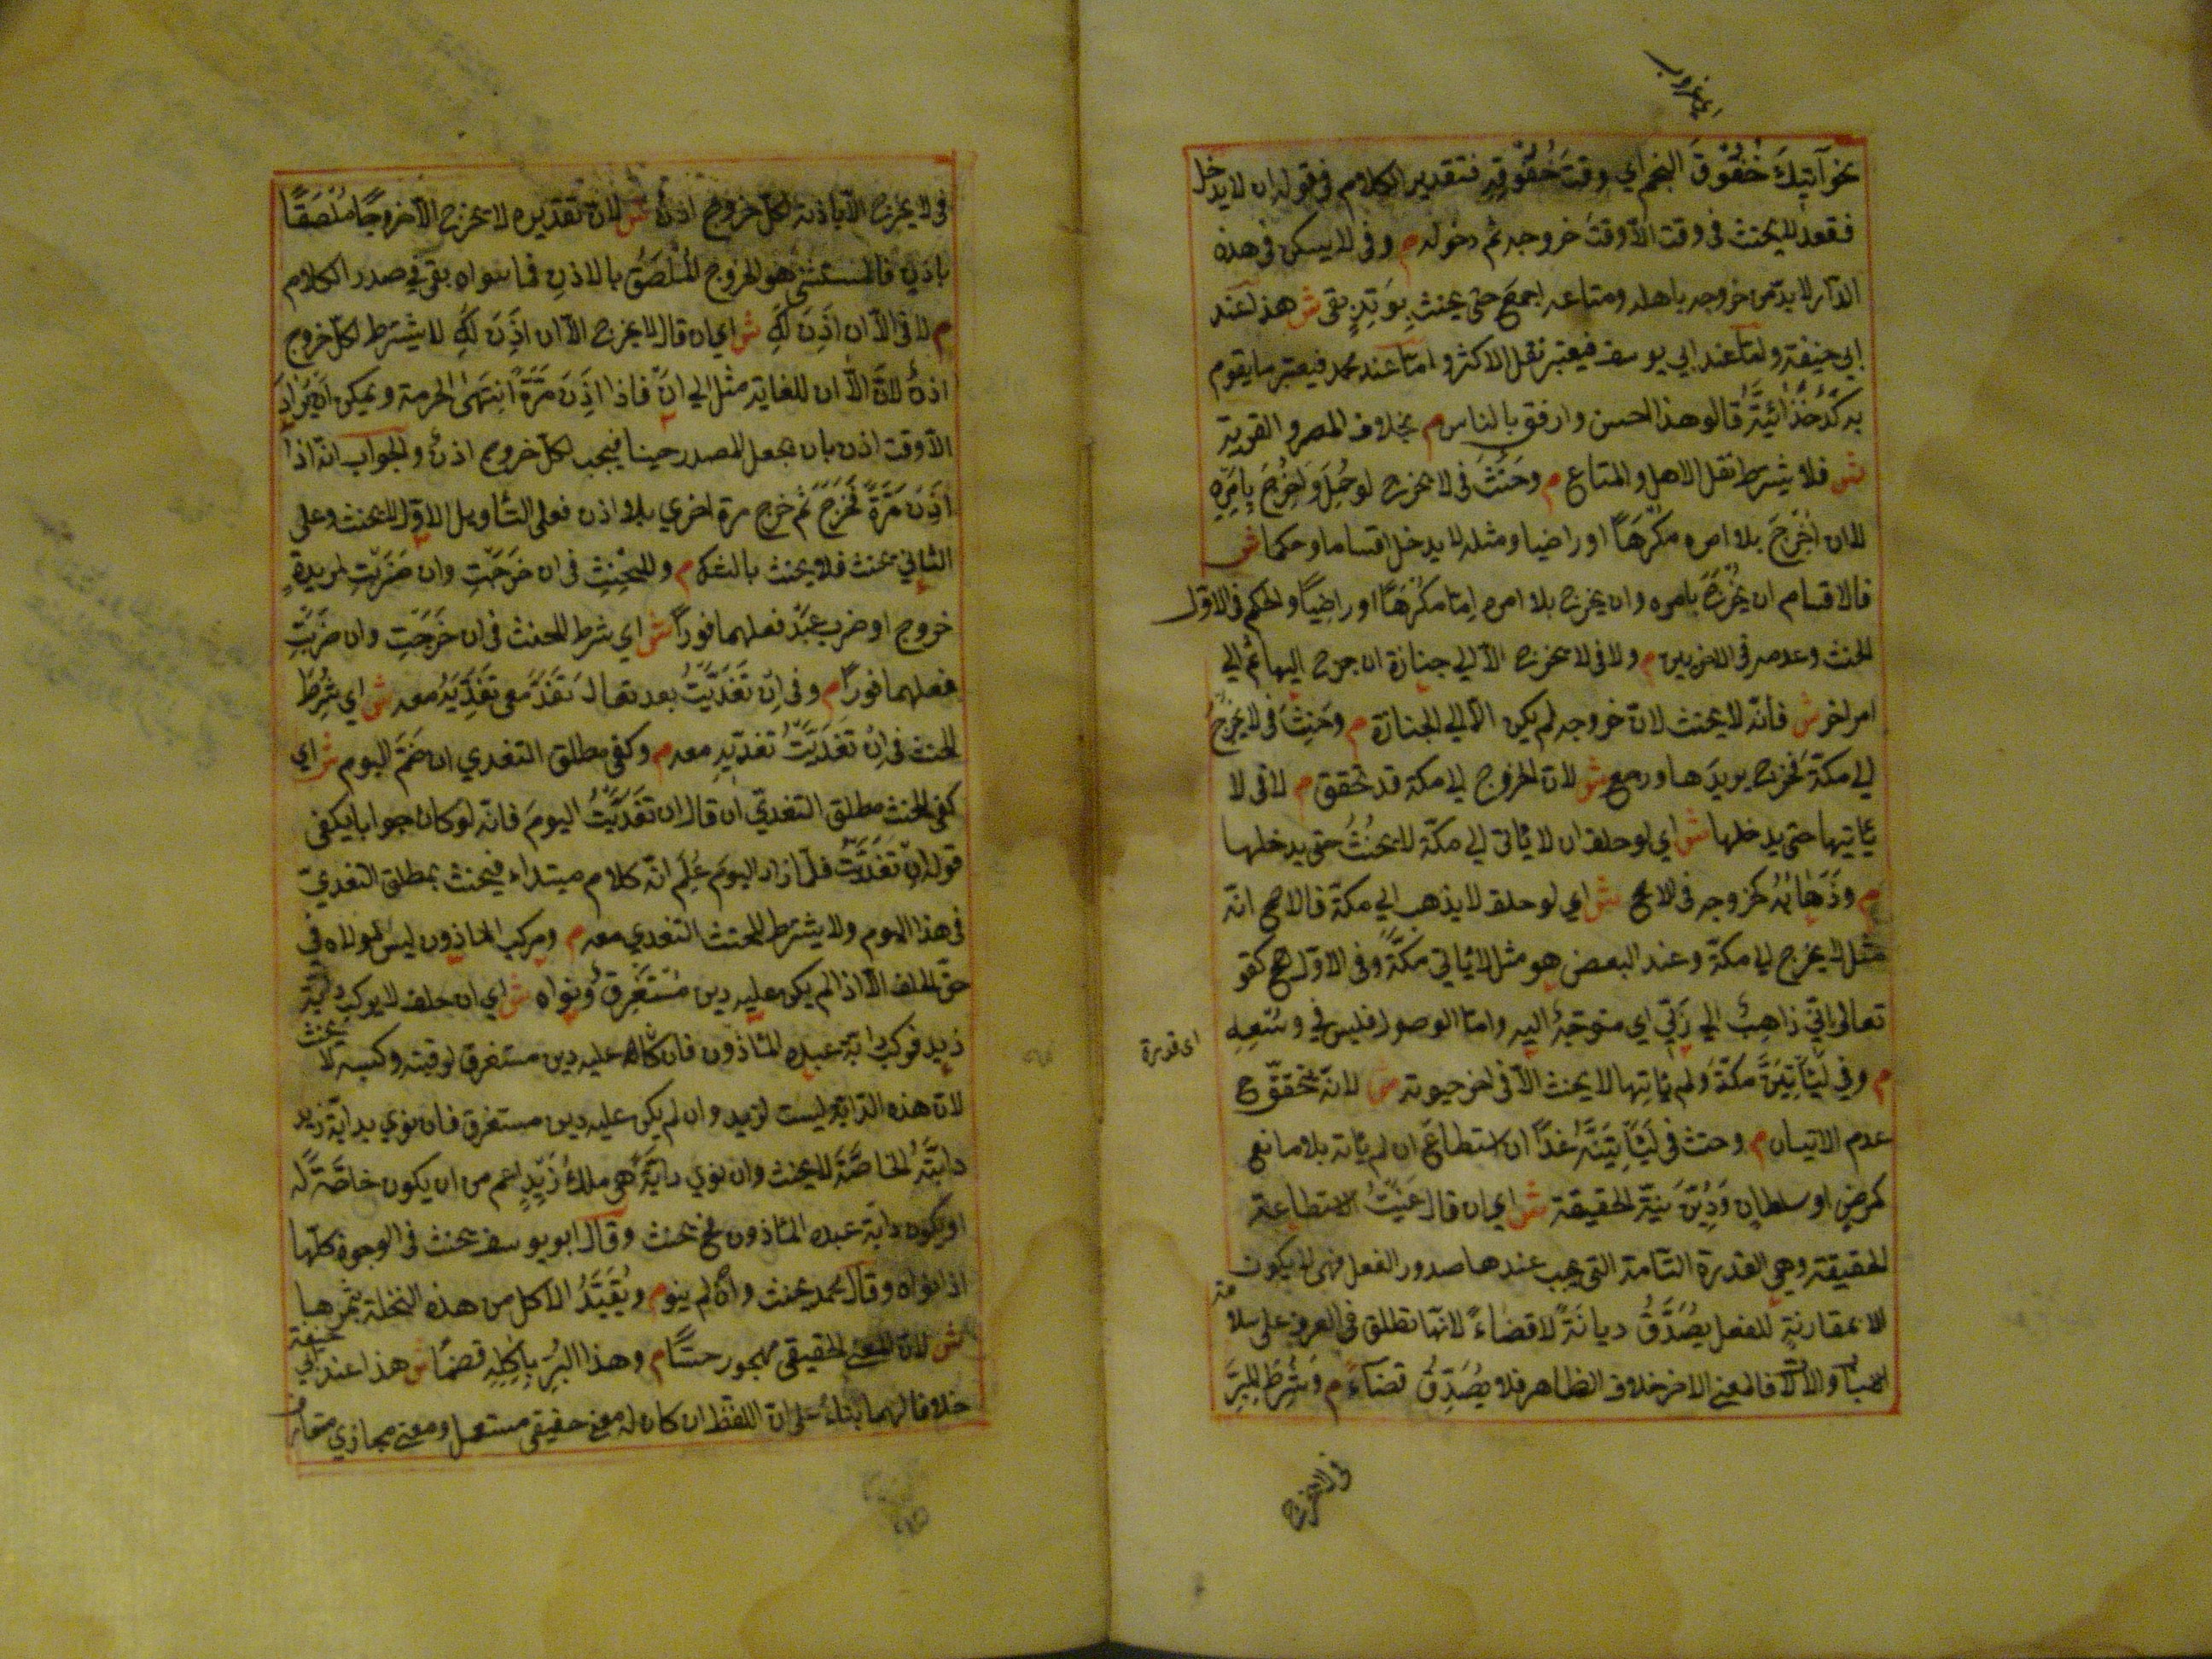 اي غروب
نحو آتيك خُفُوقَ النجم اي وقتَ خُفُوقِهِ فتقدير الكلام في قوله ان لا يدخل
فقعد لا يحنث في وقت الا وقت خروجه ثم دخوله م وفي لا يسكن في هذه
الدار لا بدّ من خروجه باهله ومتاعه اجمع حتى يحنث بوتدٍ بقى ش هذا عند
ابي حنيفة واما عند ابي يوسف فيعتبر نقل الاكثر واما عند محمد فيعتبر ما يقوم
به كدخذائيته قالو هذا احسن وارفق بالناس م بخلاف المصر والقرية
ش فلا يشترط نقل الاهل والمتاع م وحَنِثَ في لا يخرج لو حُمِلَ واُخرِجَ بامره
لا ان اُخرِجَ بلا امره مكرَهًا او راضيا ومثله لا يدخل اقساما وحكما ش
فالاقسام ان يُخْرَجَ بامره وان يخرج بلا امره اِمّا مكرَهًا او راضِيًا والحكم في الاول
الحنث وعدمه في الاخريين م ولا في لا يخرج الا الى جنازة ان خرج اليها ثم الى
امر اخر ش فانّه لا يحنث لانّ خروجه لم يكن الا الى الجنازة م وحَنِثَ في لا يخرج
الى مكة فخرج يريدها ورجع ش لان الخروج الى مكة قد تحقق م لا في لا
يأتيها حتى يدخلها ش اي لو حلف ان لا يأتى الى مكّة لا يحنثُ حتى يدخلها
م وذهابُهُ كخروجه في الاصح ش اي لو حلف لا يذهب الى مكة فالاصح انّه
مثل لا يخرج الى مكة وعند البعض هو مثل لا يأتي مكّة وفي الاول اصح كقو
تعالى انّي ذاهِبٌ الى ربّي اي متوجّهٌ اليه وامّا الوصول فليس في وسْعِهِ
اى قدرة
م وفي ليأتينّ مكّة ولم يأتها لا يحنث الا في اخر حيوته ش لانّه يتحقّق ح
عدم الاتيان م وحنث في ليأتينّه غدًا ان استطاع ان لم يأته بلا مانع
كمرضٍ او سلطانٍ وَدُيِّنَ بنيّة الحقيقة ش اي ان قال عَنَيْتُ الاستطاعة
الحقيقة وهي القدرة التامّة التي يجب عندها صدور الفعل فهي لا يكون
الا مقارنةٍ للفعل يصُدّقُ ديانةً لا قضاءً لانّها تطلق في العرف على سلامة
الاسباب والالات فالمعنى الاخر خلاف الظاهر فلا يصُدّقُ قضاءً م وشُرِطَ للبِرّ
في لا يخرج
في لا يخرج الا باذنه لكلّ خروج اذنٌ ش لانّ تقديره لا يخرج الا خروجًا مُلْصَقًا
باذنٍ فالمستثنى هو الخروج المُلْصَقُ بالاذنِ فما سواه بقى في صدر الكلام
م لا في الا ان اَذِنَ لكِ ش اي ان قال لا يخرج الا ان اَذِنَ لكِ لا يشترط لكلّ خروج
اذنٌ لانّ الا ان للغاية مثل الى ان فاذا اَذِنَ مَرّةً انتهى الحرمة ويمكن ان يُراد
الا وقت اذن بان يجعل المصدر حينا فيجب لكلّ خروج اذنٌ والجواب انّه اذا
اَذِنَ مرّةً فخرجَ ثم خرج مرة اخرى بلا اذن فعلى التأويل الاوّل لا يحنث وعلى
الثاني يحنث فلا يحنث بالشك م وللحِنْثِ في ان خَرَجْتِ وان ضَرَبْتِ لمريدةِ
خروج او ضرب عبدٍ فعلهما فوراً ش اي شرط للحنث في ان خَرَجْتِ وان ضربتِ
فعلهما فوراً م وفي ان تغدّيتُ بعد تعال تغدَّ معي تغدّيه معه ش اي شُرِطَ
للحنث في اِنْ تغَدّيتُ تغدّيهِ معه م وكفى مطلق التغدي ان ضَمَّ اليوم ش اي
كفى للحنث مطلق التغدّي ان قال ان تغدّيتُ اليومَ فانّه لو كان جوابا يكفى
قوله ان تغدّيتُ فلمّا زاد اليومَ عُلِمَ انّه كلام مبتداء فيحنث بمطلق التغدي
في هذا اليوم ولا يشترط للحنث التغدي معه م ومركب المأذون ليس لمولاه في
حقّ الحلف الا اذا لم يكن عليه دين مُسْتَغْرِقٌ ونواه ش اي ان حلف لا يركب دابّة
زيد فركب دابّة عبده المأذون فان كان عليه دين مستغرق لرقبته وكسبه لا يحنث
لانّ هذه الدّابّة ليست لزيد وان لم يكن عليه دين مستغرق فان نوى بدابّة زيد
دابّته الخاصّة لا يحنث وان نوى دابّة هي ملكُ زيدٍ اعم من ان يكون خاصّةً له
او يكون دابّة عبده المأذون فح يحنث وقال ابو يوسف يحنث في الوجوه كلّها
اذا نواه وقال محمد يحنث وان لم ينو م ويُقَيَّدُ الاكل من هذه النخلة بثمرها
ش لانّ المعنى الحقيقى مهجور حسًّا م وهذا البُرّ باكله قضمًا ش هذا عند ابي حنيفة
خلافا لهما بناءً على انّ اللفظ ان كان له معنى حقيقي مستعمل ومعنى مجازي متعارف